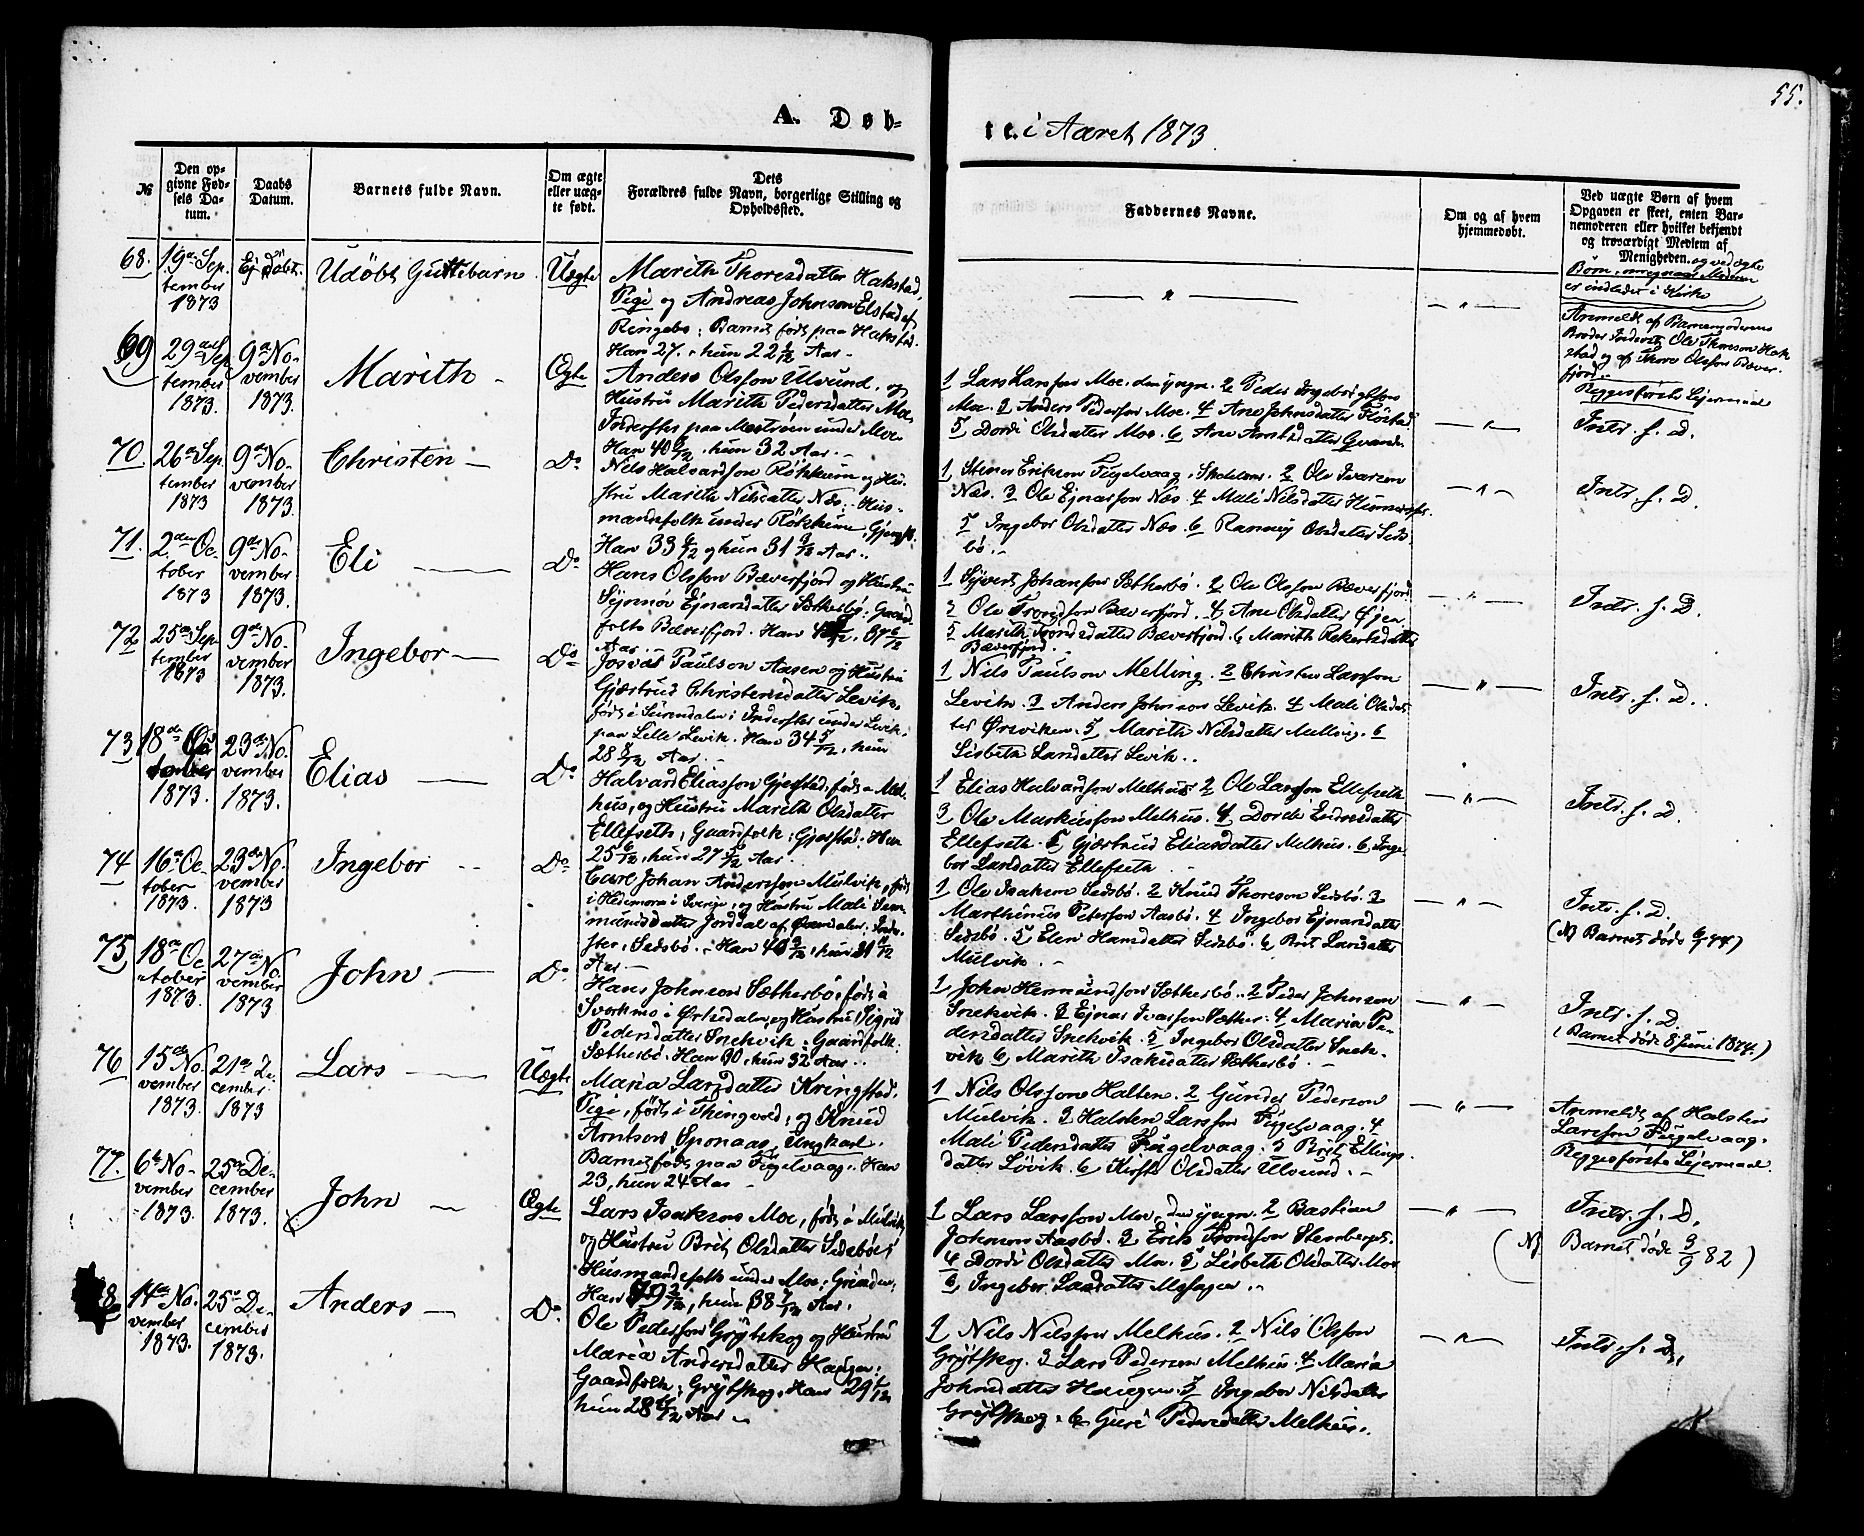 55.
A. Døb-
te. i Aaret 1873.
№
Den op-
givne Fød-
sels Da-
tum.
Daabs
Datum.
Barnets fulde Navn.
Om ægte
eller uæg-
te født.
Dets
Forældres fulde Navn, borgerlige Stilling og
Opholdssted.
Faddernes Navne.
Om og af hvem
hjemmedøbt.
Ved uægte Børn af hvem
Opgaven er skeet, enten Bar-
nemoderen eller hvilket bekjendt
og troværdigt Medlem af
Menigheden. og ved ægte
Børn, om og naar Moderen
er indledet i Kirke
68. 19de Sep-
tember
1873
Ej døbt.
Udøbt Guttebarn
Uægte
Marith Thoresdatter Hakstad,
Pige og Andreas Johnson Elstad af
Ringebo; Barnet født paa Hakstad.
Han 27, hun 22 Aar.
Anmeldt af Barnemoderens
Broder Ole Thoreson Hak-
stad og af Thore Olsson Bæver-
fjord.
Begges første Lejermaal
69 29de Sep-
tember
1873.
9de No-
vember
1873.
Marith
Ægte
Anders Olsson Ulvund, og
Hustru Marith Pedersdatter Moe
Inderster paa under Moe.
Han 40, hun 32 Aar.
1 Lars Larsson Moe, den yngre. 2 Peder Ingebrigtson
Moe. 3 Anders Pederson Moe. 4 Ane Johnsdatter
5 Dordi Olsdatter Moe. 6 Ane
Intr. s. D.
70 26de Sep-
tember
1873
9de No-
vember
1873.
Christen
Do
Nils Halvardson Røkkum og Hu-
stru Marith Nilsdatter Næs; Hus-
mandsfolk under Røkkum,
Han 33 og hun 31 Aar.
1 Erikson Fugelvaag, 2 Ole Ivarson
Næs. 3 Ole Ejnarson Næs. 4 Mali Nilsdatter
5 Ingebor Olsdatter Næs. 6 Olsdatter Seds-
bø.
Intr. s. D.
71. 2den Oc-
tober
1873
9de No-
vember
1873.
Eli
Do
Hans Olsson Bæverfjord og Hustru
Ejnarsdatter Sætherbø; Gaard-
folk Bæverfjord. Han
Aar.
1 Sivert Johanson Sætherbø. 2 Ole Olsson Bæverfjord
3 Ole Trondson Bæverfjord. 4 Ane Olsdatter Øjen.
5 Marith Trondsdatter Bæverfjord. 6 Marith
Bæverfjord.
Intr. s. D.
72 25de Sep-
tember
1873
9de No-
vember
1873.
Ingebor
Do
Paulson Aasen og Hustru
Gjærtrud Christensdatter Levik,
født i Surendalen; Inderster under Levik,
paa Lille Levik. Han 34 5/12, hun
28 8/12 Aar.
1 Nils Paulson Melling. 2 Christen Larsson
Levik. 3 Anders Johnson Levik. 4 Mali Olsdat-
ter Ørsviken. 5 Marith Nilsdatter Melling. 6
Lisbeth Larsdatter Levik.
Intr. s. D.
73 18de
1873.
23de No-
vember
1873.
Elias
Do
Halvard Eliasson Gjerstad, født Mel-
hus, og Hustru Marith Olsdatter
Ellefseth; Gaardfolk; Gjerstad. Han
25 6/12, hun 27 Aar.
1 Elias Halvardson Melhus 2 Ole Larsson Ellefseth
3 Ole Markusson Melhus. 4 Dordi Endresdatter
Ellefseth. 5 Gjærtrud Eliasdatter Melhus. 6 Inge-
bor Larsdatter Ellefseth.
Intr. s. D.
74 16de Oc-
tober
1873.
23de No-
vember
1873
Ingebor
Do
Carl Johan Andersson Mulvik, født
i Hedemora i Sverige, og Hustru Mali Sem-
mundsdatter Jordal af Qvædalen; Inder-
ster, Sedsbø. Han 40, hun 41
Aar.
1 Ole Isakson Sedsbø. 2 Knud Thoreson Sedsbø. 3
Marthinus Peterson Aasbø. 4 Ingebor Ejnarsdatter
Sedsbø. 5 Elen Hansdatter Sedsbø. 6 Brit Larsdatter
Mulvik.
Intr. s. D.
(N Barnet døde)
75 18de Oc-
tober
1873.
27de No-
vember
1873
John
Do
Hans Johnson Sætherbø, født å
Svorkmo i Orkedalen, og Hustru Sigrid
Pedersdatter Snekvik; Gaardfolk:
Sætherbø. Han 30, hun 32 Aar.
1 John Hermundson Sætherbø. 2 Peder Johnson
Snekvik. 3 Ejnar Ivarson Sæther. 4 Maria Pe-
dersdatter Snekvik. 5 Ingebor Olsdatter Snek-
vik 6 Marith Isaksdatter Sætherbø.
Intr. s. D.
(Barnet døde 8 Juni 1874.)
76 15de No-
vember
1873.
21de De-
cember
1873
Lars
Uægte
Maria Larsdatter Kringstad,
Pige, født i Thingvold, og Knud
Arntson Sponaas, Ungkarl.
Barnet født paa Fugelvaag. Han
23, hun 24 Aar
1 Nils Olsson Halten. 2 Gunder Pederson
Mulvik. 3 Halsten Larsson Fugelvaag. 4
Mali Pedersdatter Fugelvaag. 5 Brit Ellings-
datter Løvik. 6 Kirsti Olsdatter Ulvund.
Anmeldt af Halsten
Larsson Fugelvaag.
Begges første Lejermaal.
77. 6te No-
vember
1873.
25de De-
cember
1873.
John
Ægte
Lars Isakson Moe, født å Mulvik
og Hustru Brit Olsdatter Sedsbø;
Husmandsfolk under Moe;
Han hun 38 7/12 Aar.
1 Lars Larsson Moe, den yngre. 2 Bastian
Johnson Aasbø. 3 Erik Trondson Stenberget.
4 Dordi Olsdatter Moe. 5 Lisbeth Olsdatter Moe
6 Ingebor Larsdatter
Intr. s. D.
(N Barnet døde 3/9 82)
8 14de No-
vember
1873.
25de De-
cember
1873.
Anders
Do
Ole Pederson Grytskog og Hustru
Maria Andersdatter Haugen;
Gaardfolk; Grytskog, Han 29
hun 28 Aar
1 Nils Nilsson Melhus. 2 Nils Olsson
Grytskog. 3 Lars Pederson Melhus. 4 Maria
Johnsdatter Haugen. 5 Ingebor Nilsdatter
Grytskog. 6 Guri Pedersdatter Melhus.
Intr. s. D.